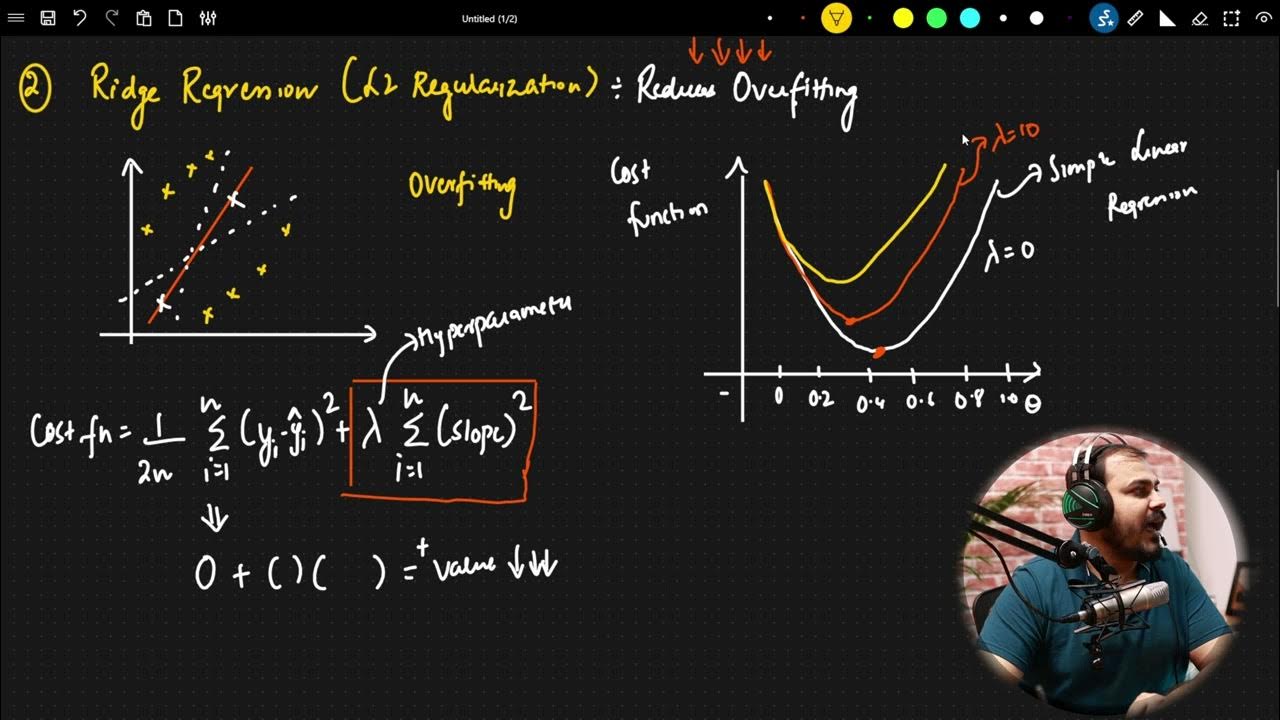 Untitled (1/2)
② Ridge Regression (L2 Regularization) ÷ Reduces Overfitting
Overfitting
Cost function
λ=10
Simple Linear Regression
λ=0
Hyperparameter
- 0 0.2 0.4 0.6 0.8 1.0 θ
Cost fn = 1/2n n Σ i=1 (yi-ŷi)² + λ n Σ i=1 (slope)²
0 + ( ) ( ) = + value ↓↓↓